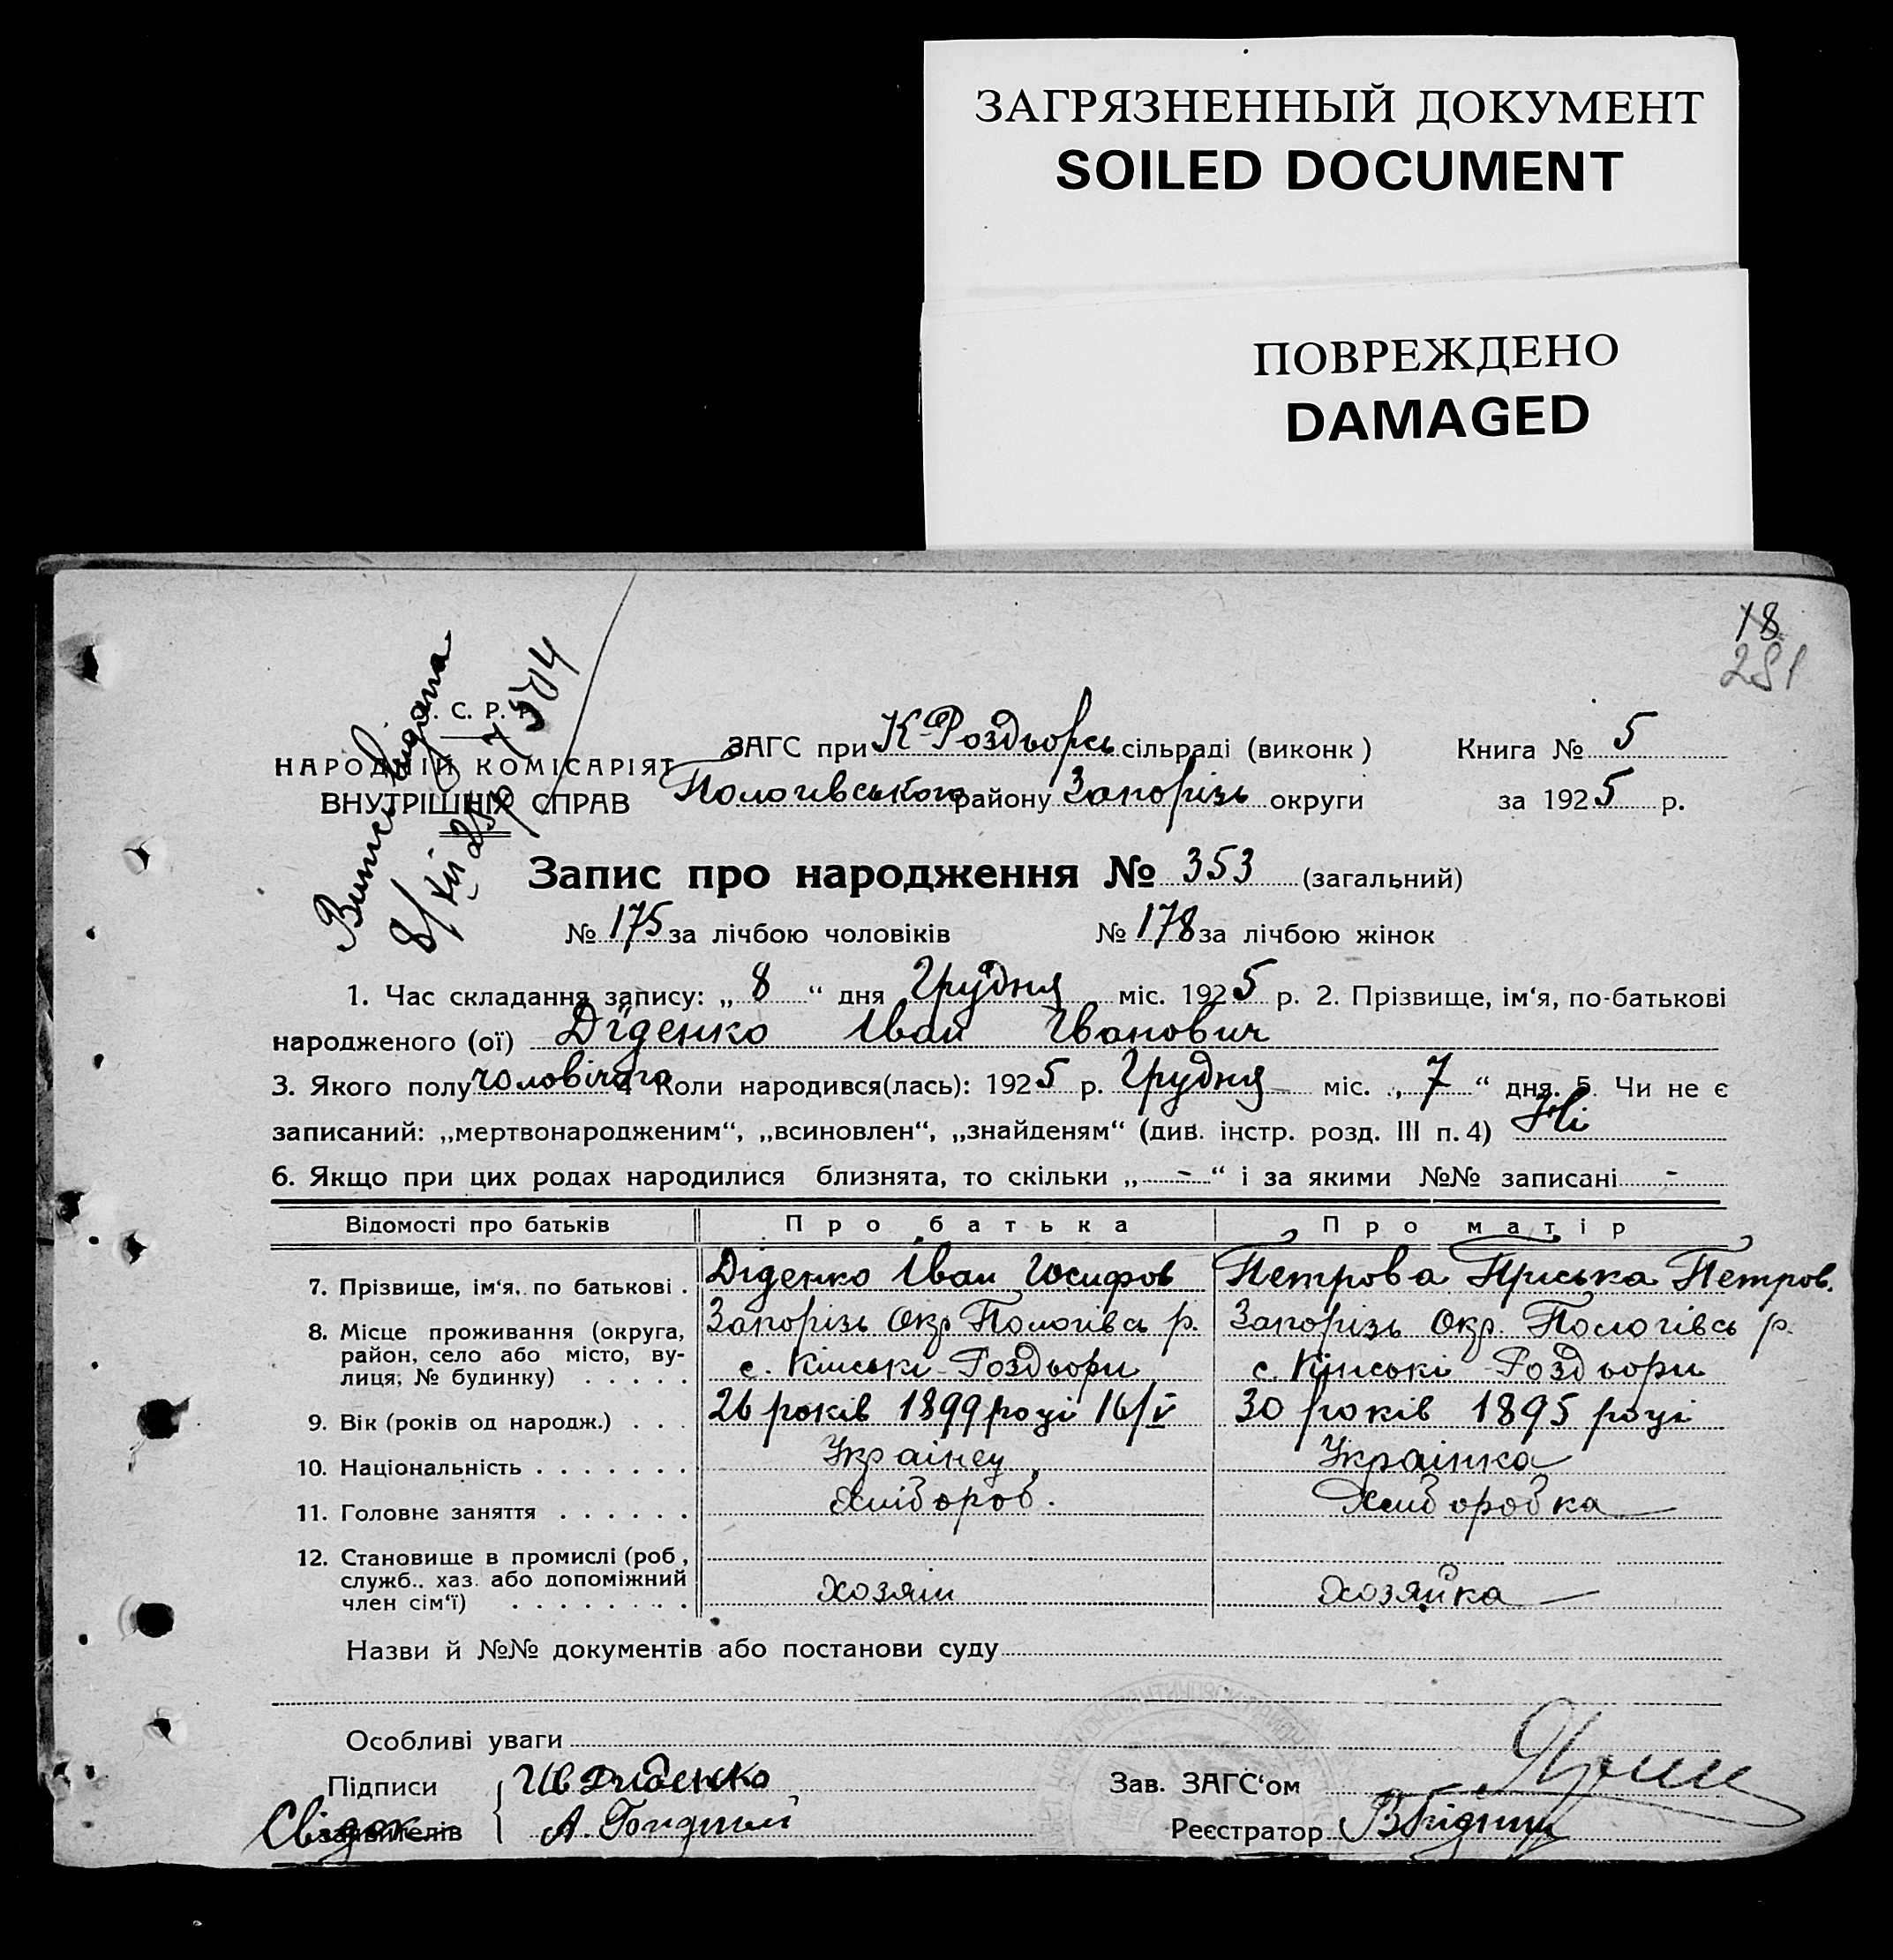 ЗАГРЯЗНЕННЫЙ ДОКУМЕНТ
SOILED DOCUMENT
ПОВРЕЖДЕНО
DAMAGED
18
281
С. Р. Р.
НАРОДНІЙ КОМІСАРІЯТ
ВНУТРІШНІХ СПРАВ
Виписъ видана
8/XII 25 р
ЗАГС при К-Роздорсь сільраді (виконк) Книга № 5
Пологівського району Запорізь округи за 1925 р.
Запис про народження № 353 (загальний)
№ 175 за лічбою чоловіків № 178 за лічбою жінок
1. Час складання запису: „ 8 “ дня Грудня міс. 1925 р. 2. Прізвище, ім‘я, по-батькові
народженого (ої) Діденко Іван Іванович
3. Якого полу чоловічого 4 Коли народився(лась): 1925 р. Грудня міс. „ 7 “ дня. 5. Чи не є
записаний: „мертвонародженим“, „всиновлен“, „знайденям“ (див. інстр. розд. III п. 4) Ні
6. Якщо при цих родах народилися близнята, то скільки „ - “ і за якими №№ записані -
Відомості про батьків Про батька Про матір
7. Прізвище, ім‘я, по батькові . Діденко Іван Иосифов Петрова Приська Петров.
8. Місце проживання (округа, Запорізь Окр Пологівсь р. Запорізь Окр. Пологівсь р.
район, село або місто, ву-
лиця; № будинку) . . . . . с. Кінські-Роздори с. Кінські Роздори
9. Вік (років од народж.) . . . 26 років 1899 році 16/V 30 років 1895 році
10. Національність . . . . . . . Українец Українка
11. Головне заняття . . . . . . Хліборов. Хліборобка
12. Становище в промислі (роб,
служб.. хаз. або допоміжний
член сім‘ї) . . . . . . . . хозяїн хозяйка
Назви й №№ документів або постанови суду
Особливі уваги
Підписи Ив Диденко Зав. ЗАГС‘ом
Свідок заявителів А. Реєстратор